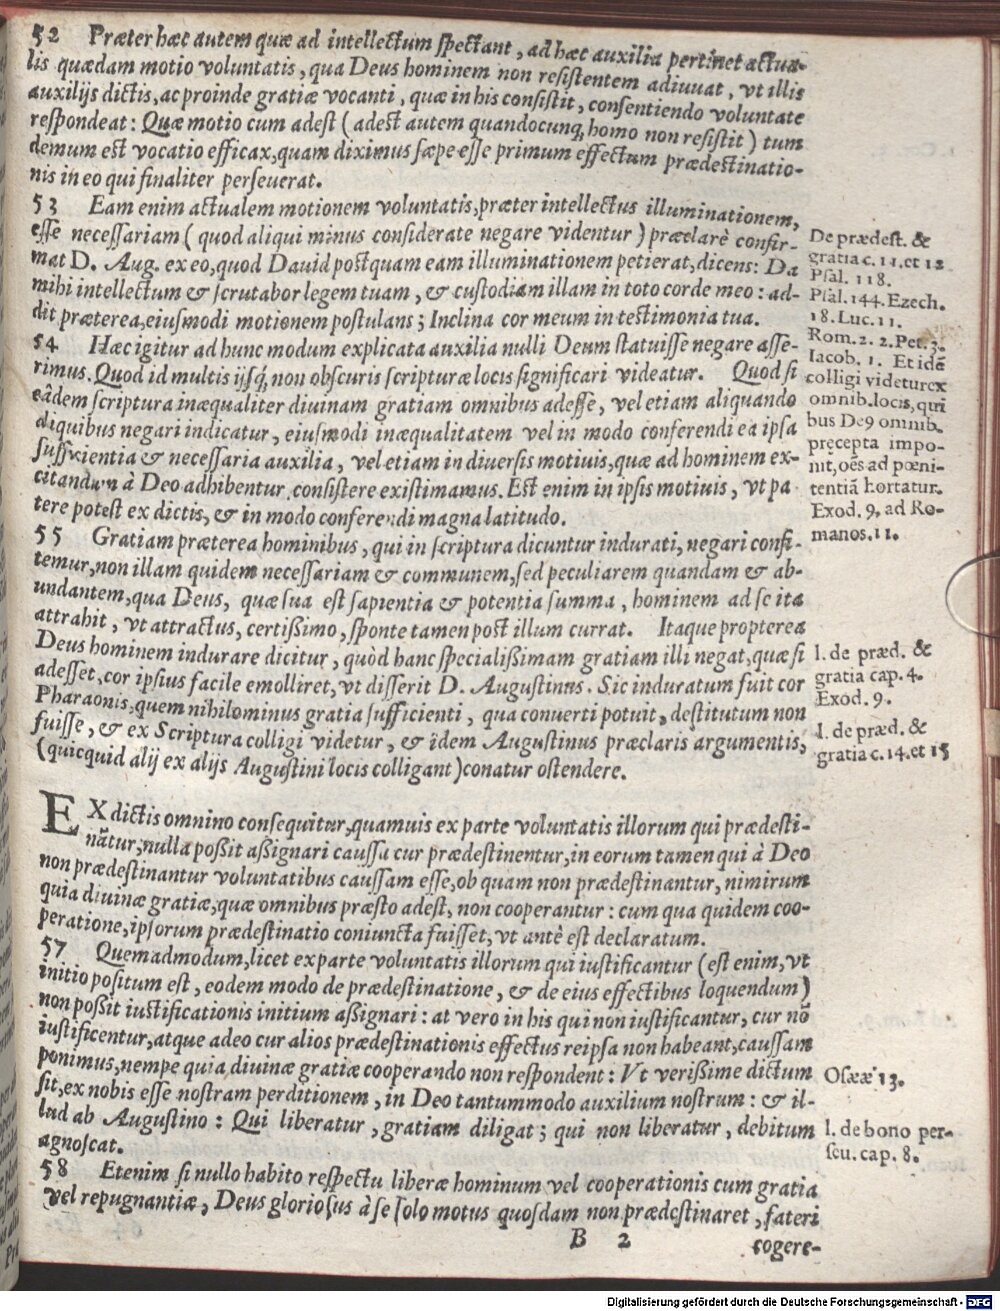 52 Præter hæc autem quæ ad intellectum spectant, ad hæc auxilia pertinet actua-
lis quædam motio voluntatis, qua Deus hominem non resistentem adiuuat, vt illis
auxilijs dictis, ac proinde gratiæ vocanti, quæ in his consistit, consentiendo voluntate
respondeat: Quæ motio cum adest (adest autem quandocunq; homo non resistit) tum
demum est vocatio efficax, quam diximus sæpe esse primum effectum prædestinatio-
nis in eo qui finaliter perseuerat.
53 Eam enim actualem motionem voluntatis, præter intellectus illuminationem,
esse necessariam (quod aliqui minus considerate negare videntur) præclarè confir-
mat D. Aug. ex eo, quod Dauid postquam eam illuminationem petierat, dicens: Da
mihi intellectum & scrutabor legem tuam, & custodiam illam in toto corde meo: ad-
dit præterea, eiusmodi motionem postulans; Inclina cor meum in testimonia tua.
De prædest. &
gratia c. 14. et 12
Psal. 118.
Psal. 144. Ezech.
18. Luc. 11.
Rom. 2. 2. Pet. 3.
Iacob. 1. Et idē
colligi videtur ex
omnib. locis, qui
bus De9 omnib.
pręcepta impo-
nit, oēs ad pœni-
tentiā hortatur.
Exod. 9. ad Ro-
manos. 11.
54 Hæc igitur ad hunc modum explicata auxilia nulli Deum statuisse negare asse-
rimus. Quod id multis ijsq́; non obscuris scripturæ locis significari videatur. Quod si
eâdem scriptura inæqualiter diuinam gratiam omnibus adesse, vel etiam aliquando
aliquibus negari indicatur, eiusmodi inæqualitatem vel in modo conferendi ea ipsa
sufficientia & necessaria auxilia, vel etiam in diuersis motiuis, quæ ad hominem ex-
citandum à Deo adhibentur, consistere existimamus. Est enim in ipsis motiuis, vt pa
tere potest ex dictis, & in modo conferendi magna latitudo.
55 Gratiam præterea hominibus, qui in scriptura dicuntur indurati, negari confi-
temur, non illam quidem necessariam & communem, sed peculiarem quandam & ab-
undantem, qua Deus, quæ sua est sapientia & potentia summa, hominem ad se ita
attrahit, vt attractus, certißimo, sponte tamen post illum currat. Itaque propterea
Deus hominem indurare dicitur, quòd hanc specialißimam gratiam illi negat, quæ si
adesset, cor ipsius facile emolliret, vt disserit D. Augustinus. Sic induratum fuit cor
Pharaonis, quem nihilominus gratia sufficienti, qua conuerti potuit, destitutum non
fuisse, & ex Scriptura colligi videtur, & idem Augustinus præclaris argumentis,
(quicquid alij ex alijs Augustini locis colligant) conatur ostendere.
l. de præd. &
gratia cap. 4.
Exod. 9.
l. de præd. &
gratia c. 14. et 15
EX dictis omnino consequitur, quamuis ex parte voluntatis illorum qui prædesti-
nātur, nulla poßit aßignari caussa cur prædestinentur, in eorum tamen qui à Deo
non prædestinantur voluntatibus caussam esse, ob quam non prædestinantur, nimirum
quia diuinæ gratiæ, quæ omnibus præsto adest, non cooperantur: cum qua quidem coo-
peratione, ipsorum prædestinatio coniuncta fuisset, vt antè est declaratum.
57 Quemadmodum, licet ex parte voluntatis illorum qui iustificantur (est enim, vt
initio positum est, eodem modo de prædestinatione, & de eius effectibus loquendum)
non poßit iustificationis initium aßignari: at vero in his qui non iustificantur, cur nō
iustificentur, atque adeo cur alios prædestinationis effectus reipsa non habeant, caussam
ponimus, nempe quia diuinæ gratiæ cooperando non respondent: Vt verißime dictum
sit, ex nobis esse nostram perditionem, in Deo tantummodo auxilium nostrum: & il-
lud ab Augustino: Qui liberatur, gratiam diligat; qui non liberatur, debitum
agnoscat.
Oseæ 13.
l. de bono per-
seu. cap. 8.
58 Etenim si nullo habito respectu liberæ hominum vel cooperationis cum gratia
vel repugnantiæ, Deus gloriosus à se solo motus quosdam non prædestinaret, fateri
B 2
cogere-
Digitalisierung gefördert durch die Deutsche Forschungsgemeinschaft - DFG